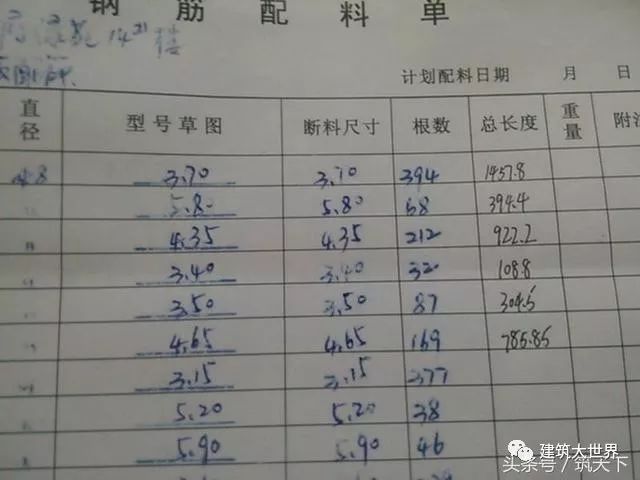 钢筋配料单
14 楼
计划配料日期 月 日
直径 型号草图 断料尺寸 根数 总长度 重量 附注
8 3.70 3.70 394 1457.8
5.80 5.80 68 394.4
〃 4.35 4.35 212 922.2
〃 3.40 3.40 32 108.8
〃 3.50 3.50 87 304.5
〃 4.65 4.65 169 785.85
〃 3.15 3.15 377
〃 5.20 5.20 38
〃 5.90 5.90 46
建筑大世界
头条号/筑天下